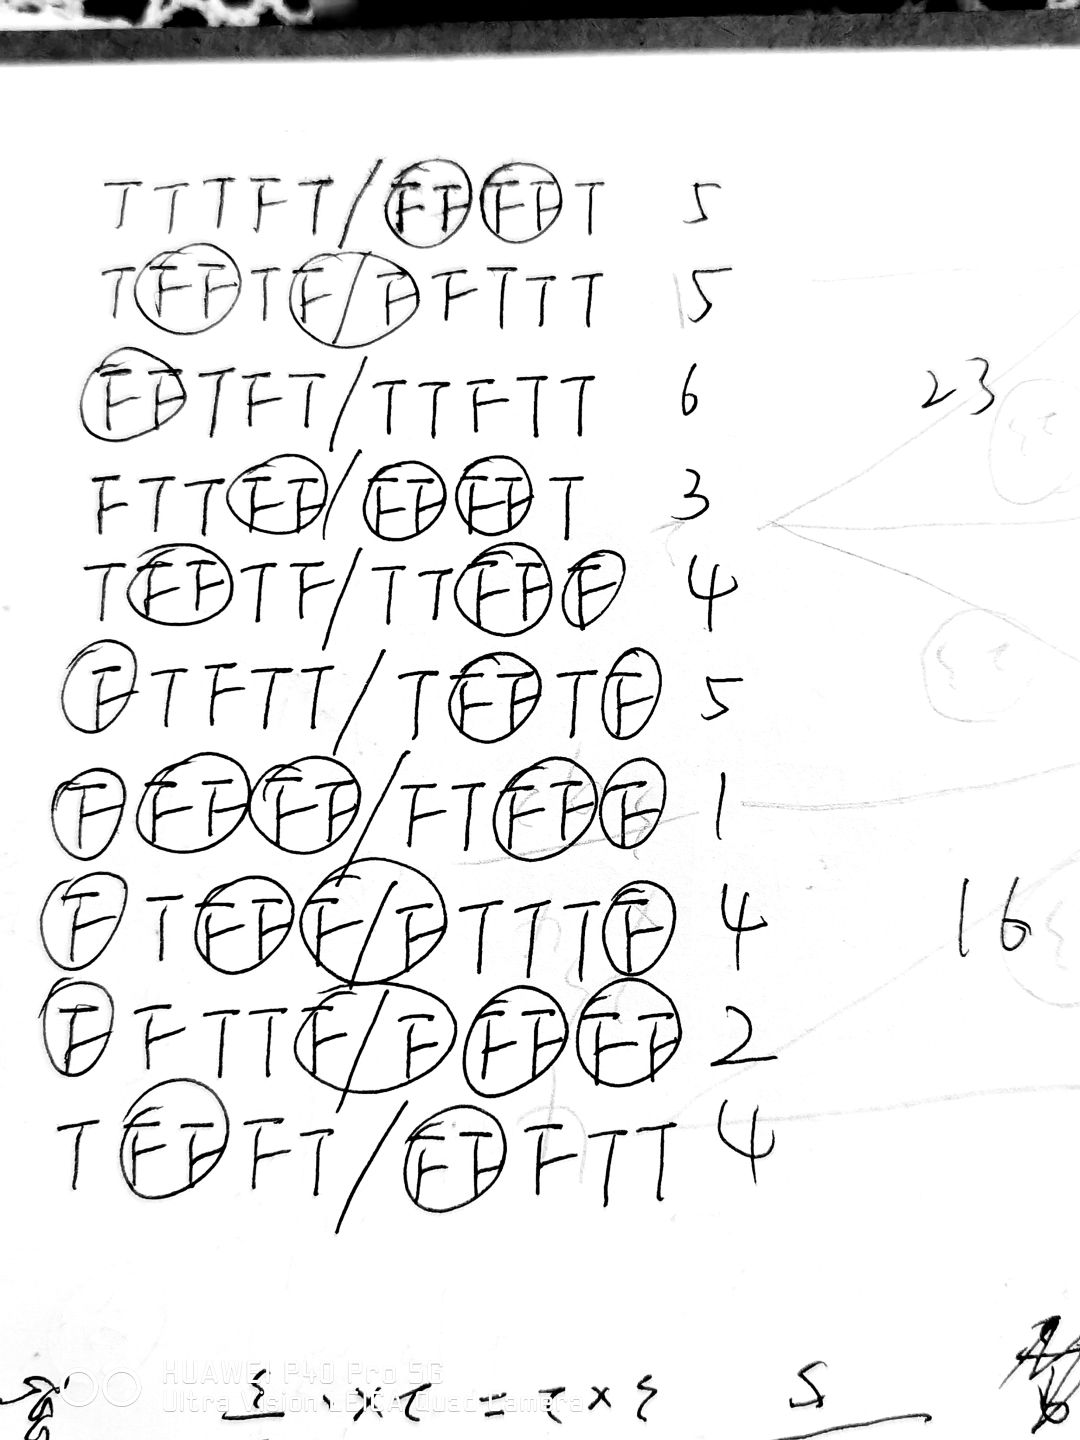 TTTFT/FFFFT 5
TFFTF/FFTTT 5
FFTFT/TTFTT 6 23
FTTFF/FFFFT 3
TFFTF/TTFFF 4
FTFTT/TFFTF 5
FFFFF/FTFFF 1
FTFFF/FTTTF 4 16
FFTTF/FFFFF 2
TFFFT/FFFTT 4
HUAWEI P40 Pro 5G
Ultra Vision LEICA Quad Camera